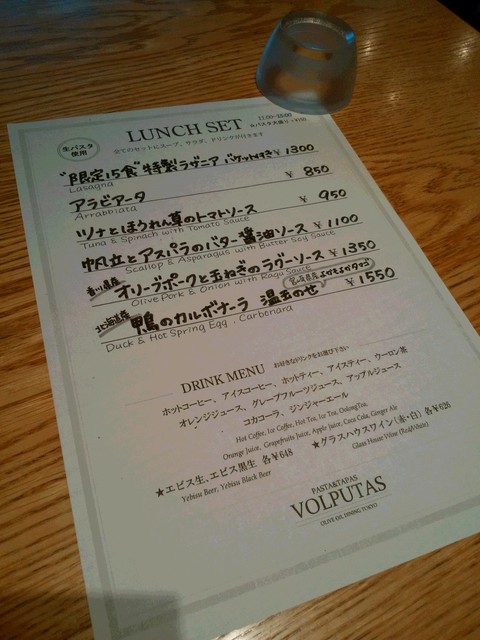 LUNCH SET
11:00~16:00
生パスタ
使用
全てのセットにスープ、サラダ、ドリンクが付きます
"限定15食"特製ラザニア バゲット付き ¥1300
Lasagna
アラビアータ ¥ 850
Arrabbiata
ツナとほうれん草のトマトソース ¥ 950
Tuna & Spinach with Tomato Sauce
帆立とアスパラのバター醤油ソース ¥1100
Scallop & Asparagus with Butter Soy Sauce
香川県産 オリーブポークと玉ねぎのラグーソース ¥1350
Olive Pork & Onion with Ragu Sauce
北海道産 鴨のカルボナーラ 温玉のせ ¥1550
Duck & Hot Spring Egg . Carbonara
DRINK MENU お好きなドリンクをお選び下さい
ホットコーヒー、アイスコーヒー、ホットティー、アイスティー、ウーロン茶
オレンジジュース、グレープフルーツジュース、アップルジュース
コカコーラ、ジンジャーエール
Hot Coffee, Ice Coffee, Hot Tea, Ice Tea, OolongTea,
Orange Juice, Grapefruits Juice, Apple Juice, Coca Cola, Ginger Ale
★エビス生、エビス黒生 各¥648 ★グラスハウスワイン(赤・白) 各¥626
Yebisu Beer, Yebisu Black Beer Glass House Wine (Red/White)
PASTA&TAPAS
VOLPUTAS
OLIVE OIL DINING TOKYO